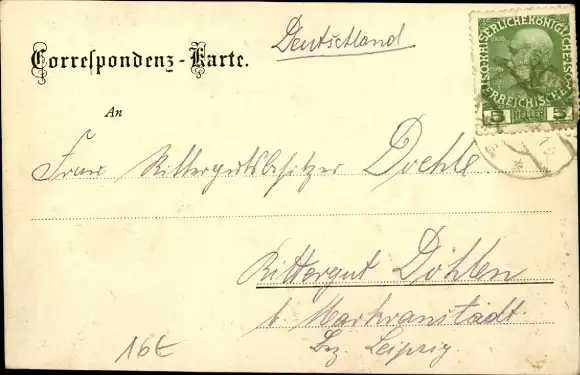 Deutschland
Correspondenz-Karte.
KAISERLICHE KÖNIGLICHE
ÖSTERREICHISCHE
5 HELLER 5
An
Frau Rittergutsbesitzer Doehle
Rittergut Döhlen
b Markranstädt.
Bez. Leipzig.
16E